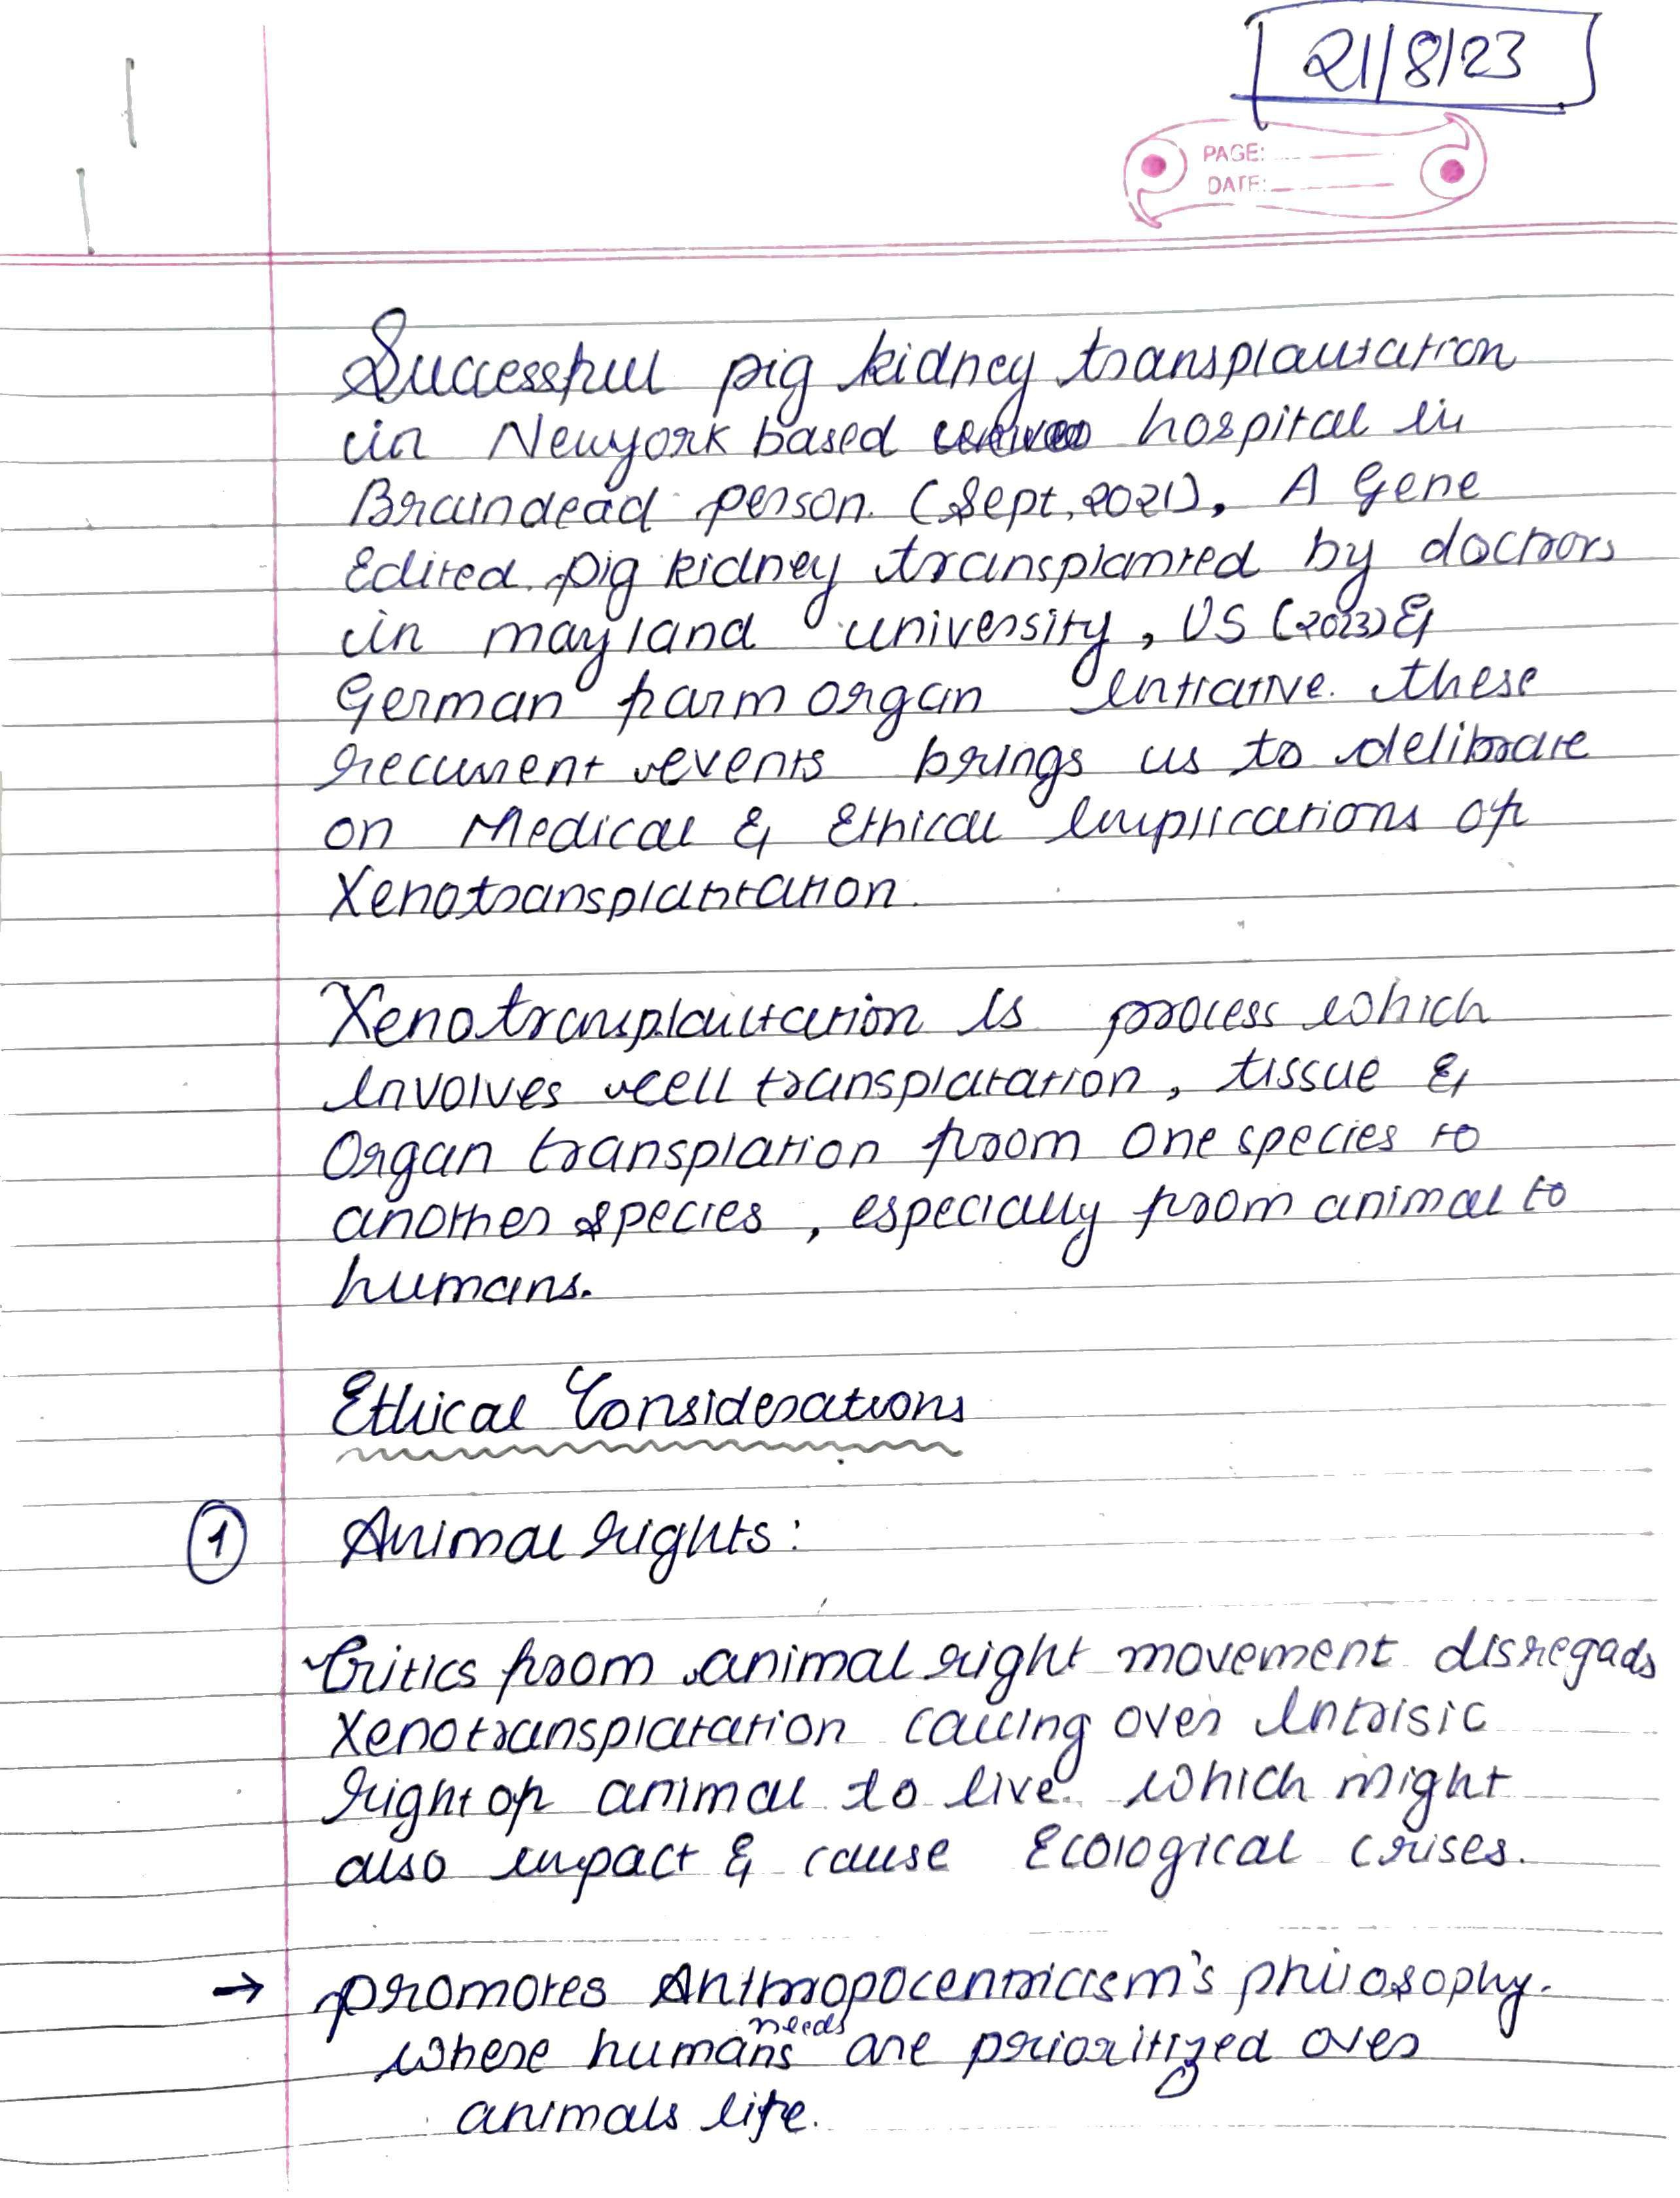 21/8/23
PAGE:
DATE:
Successful pig kidney transplantation
in Newyork based hospital in
Braindead person. (Sept, 2021), A Gene
Edited pig kidney transplanted by doctors
in mayland university, US (2023) &
German farm organ Intiative. these
recurrent events brings us to delibrate
on Medical & Ethical Implications of
Xenotransplantation.
Xenotransplantation is process which
Involves cell transplatation, tissue &
Organ transplation from one species to
another species, especially from animal to
humans.
Ethical Considerations
1 Animal rights:
Critics from animal right movement disregads
Xenotransplatation calling over Intrisic
right of animal to live. which might
also impact & cause Ecological crises.
→ promotes Anthropocentricism's philosophy.
needs
where humans are prioritized over
animals life.